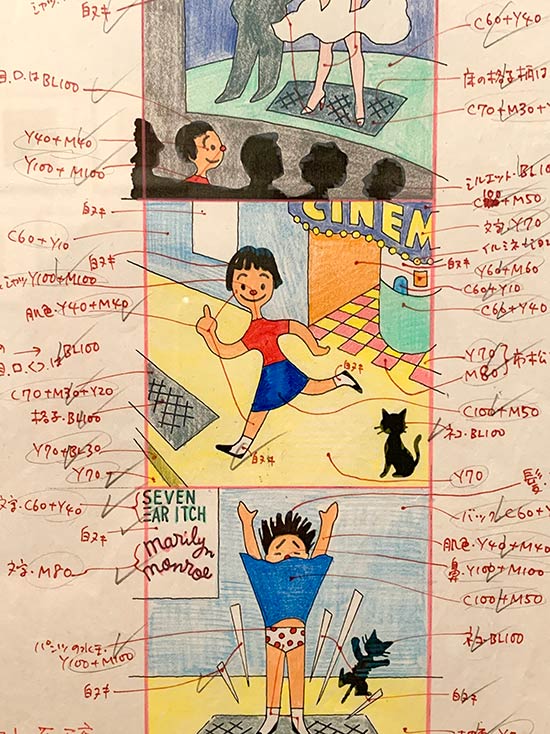 シャツ・
白ヌキ
C60+Y40
目.ロ.はBL100
床の格子柄は
C70+M30+Y
Y40+M40
Y100+M100
シルエット・BL10
C100+M50
C60+Y10
CINEM
文字.Y70
白ヌキ
白ヌキ
Y60+M60
シャツ Y100+M100
C60+Y10
肌色・Y40+M40
C66+Y40
→ BL100
Y70
市松
目.口.くつは
白ヌキ
M80
C70+M30+Y20
格子・BL100
C100+M50
Y70+BL30
ネコ・BL100
Y70
白ヌキ
Y70
髪
文字・C60+Y40
SEVEN
EAR ITCH
バックC60+Y
白ヌキ
marilyn
monroe
肌色・Y40+M40
文字・M80
鼻・Y100+M100
C100+M50
パンツの水玉・
Y100+M100
ネコ・BL100
白ヌキ
白ヌキ